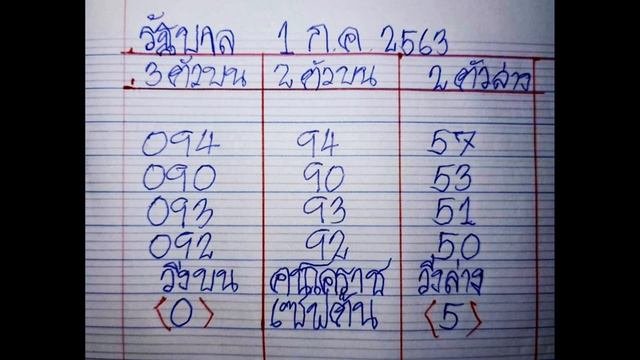 รัฐบาล 1 ก.ค. 2563
3 ตัวบน 2 ตัวบน 2 ตัวล่าง
094 94 57
090 90 53
093 93 51
092 92 50
วิ่งบน คนโคราช วิ่งล่าง
(0) เซฟตัน (5)